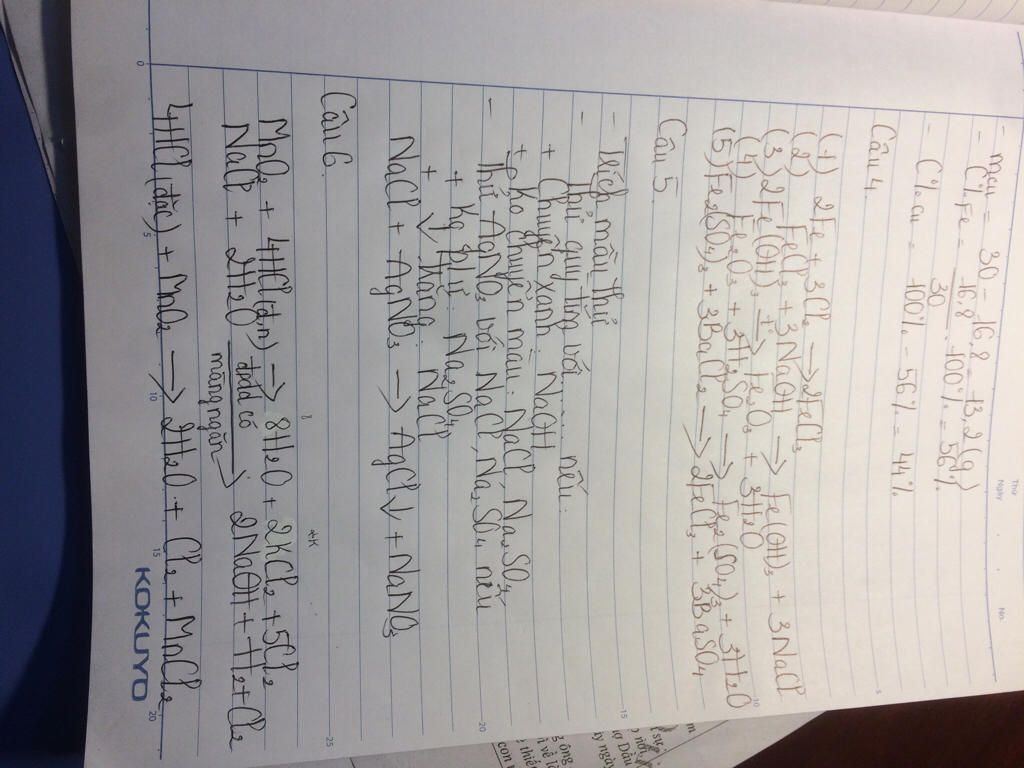 Thứ
Ngày
No.
- mcu = 30 - 16,8 = 13,2 (g)
- C% Fe = 16,8 / 30 . 100% = 56%
- C% cu = 100% - 56% = 44%
Câu 4.
(1) 2Fe + 3Cl2 → 2FeCl3
(2) FeCl3 + 3NaOH → Fe(OH)3 + 3NaCl
(3) 2Fe(OH)3 t° → Fe2O3 + 3H2O
(4) Fe2O3 + 3H2SO4 → Fe2(SO4)3 + 3H2O
(5) Fe2(SO4)3 + 3BaCl2 → 2FeCl3 + 3BaSO4
Câu 5.
- Trích mẫu thử
- Thử quỳ tím với ....... nếu:
+ Chuyển xanh: NaOH
+ Ko chuyển màu: NaCl, Na2SO4
- Thử AgNO3 với NaCl, Na2SO4 nếu
+ Kg p/ư: Na2SO4
+ ↓ trắng: NaCl
NaCl + AgNO3 → AgCl↓ + NaNO3
Câu 6.
MnO2 + 4HCl(đ,n) → 8H2O + 2KCl2 + 5Cl2
NaCl + 2H2O đpdd có màng ngăn → 2NaOH + H2 + Cl2
4HCl(đặc) + MnO2 → 2H2O + Cl2 + MnCl2
KOKUYO
0
5
10
15
20
5
10
15
20
25